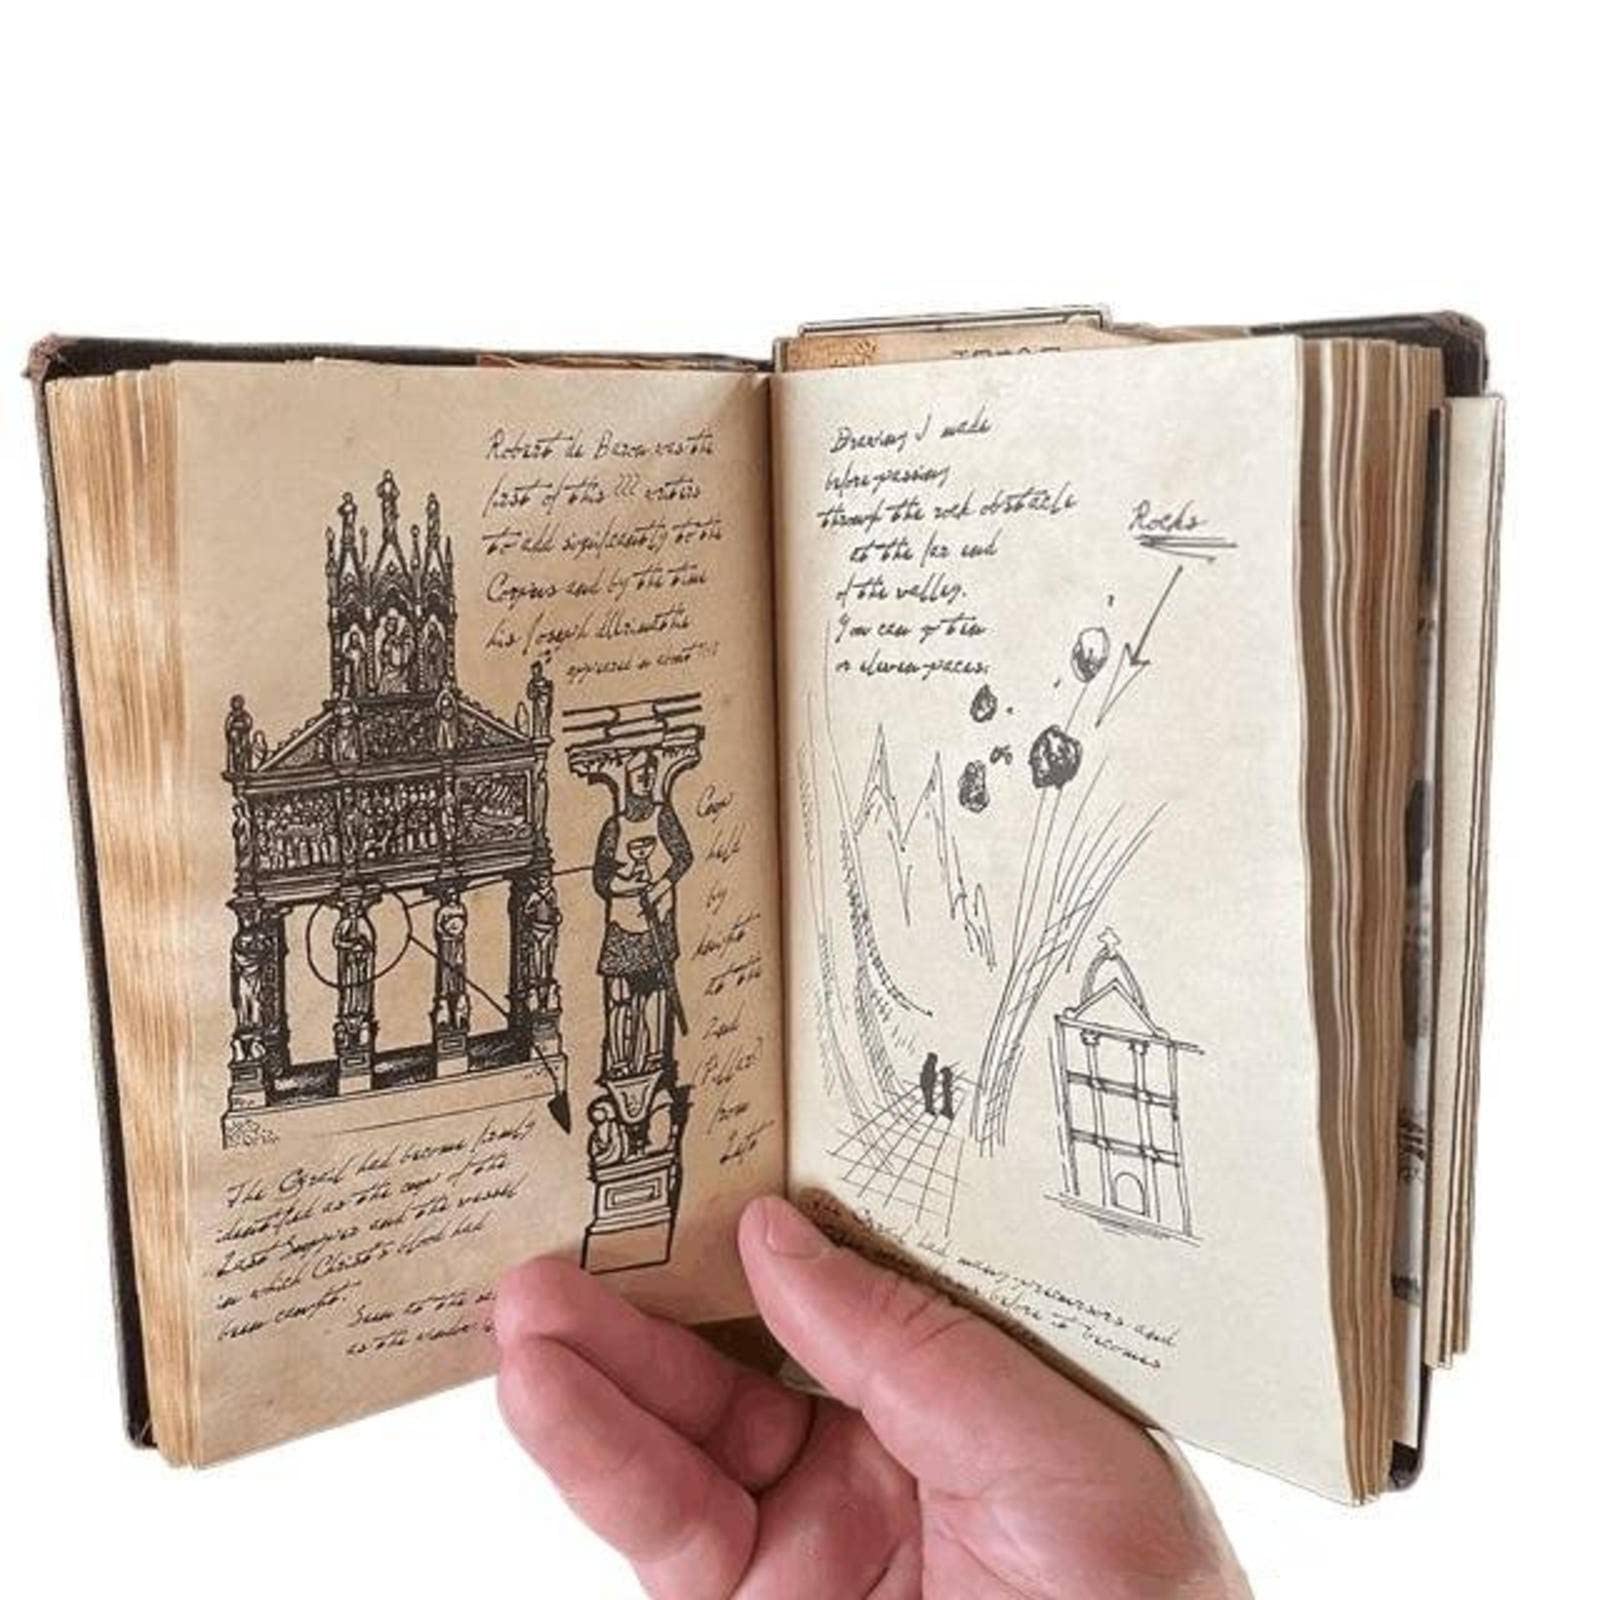 Robert de Boron was the
first of this ??? writers
to add significantly to the
Corpus and by the time
his Joseph d'Arimathe
appeared in about
Cup
held
by
knight
at the
2nd
(Pillar?)
from
left
The Grail had become firmly
identified as the cup of the
Last Supper and the vessel
in which Christ's blood had
been caught.
Seen to the
as the
Drawing I made
before passing
through the rock obstacle
at the far end
of the valley.
You can go ten
or eleven paces.
Rocks
had many precursors and
before it becomes